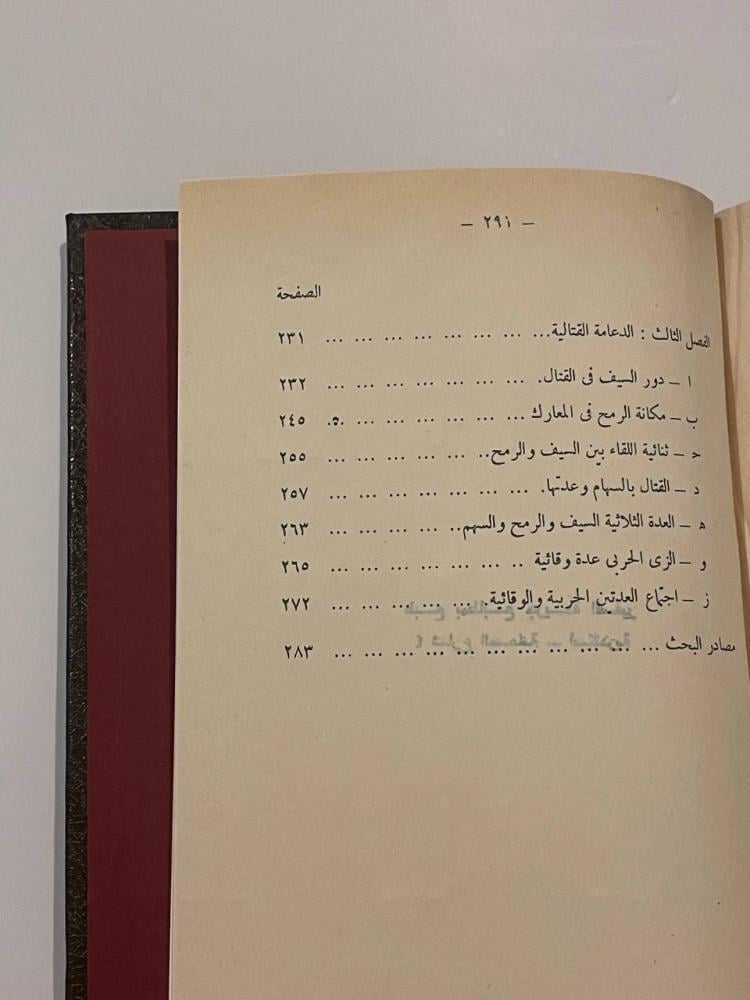 — ٢٩١ —
الصفحة
الفصل الثالث : الدعامة القتالية... ... ... ... ... ... ... ... ٢٣١
ا — دور السيف فى القتال. ... ... ... ... ... ... ... ٢٣٢
ب — مكانة الرمح فى المعارك ... ... ... ... ... ... ... ٢٤٥
ح — ثنائية اللقاء بين السيف والرمح.. ... ... ... ... ... ٢٥٥
د — القتال بالسهام وعدتها. ... ... ... ... ... ... ... ٢٥٧
ه — العدة الثلاثية السيف والرمح والسهم.. ... ... ... ... ٢٦٣
و — الزى الحربى عدة وقائية .. ... ... ... ... ... ... ... ٢٦٥
ز — اجتماع العدتين الحربية والوقائية. ... ... ... ... ... ٢٧٢
مصادر البحث ... ... ... ... ... ... ... ... ... ... ... ٢٨٣